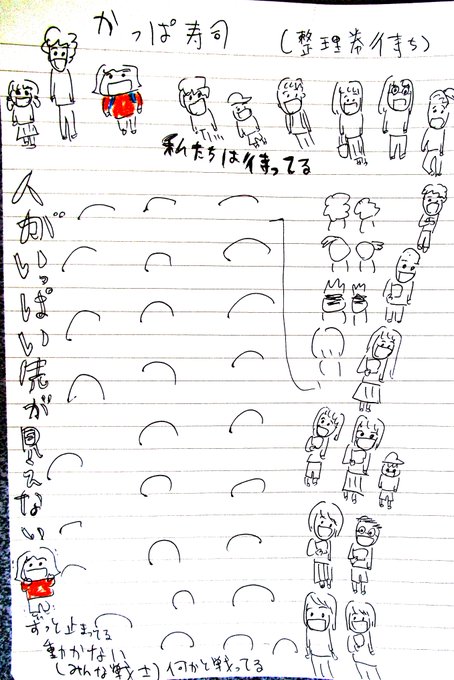 かっぱ寿司 (整理券待ち)
私たちは待ってる
人がいっぱい先が見えない
ずっと止まってる
動かない
(みんな戦士)何かと戦ってる